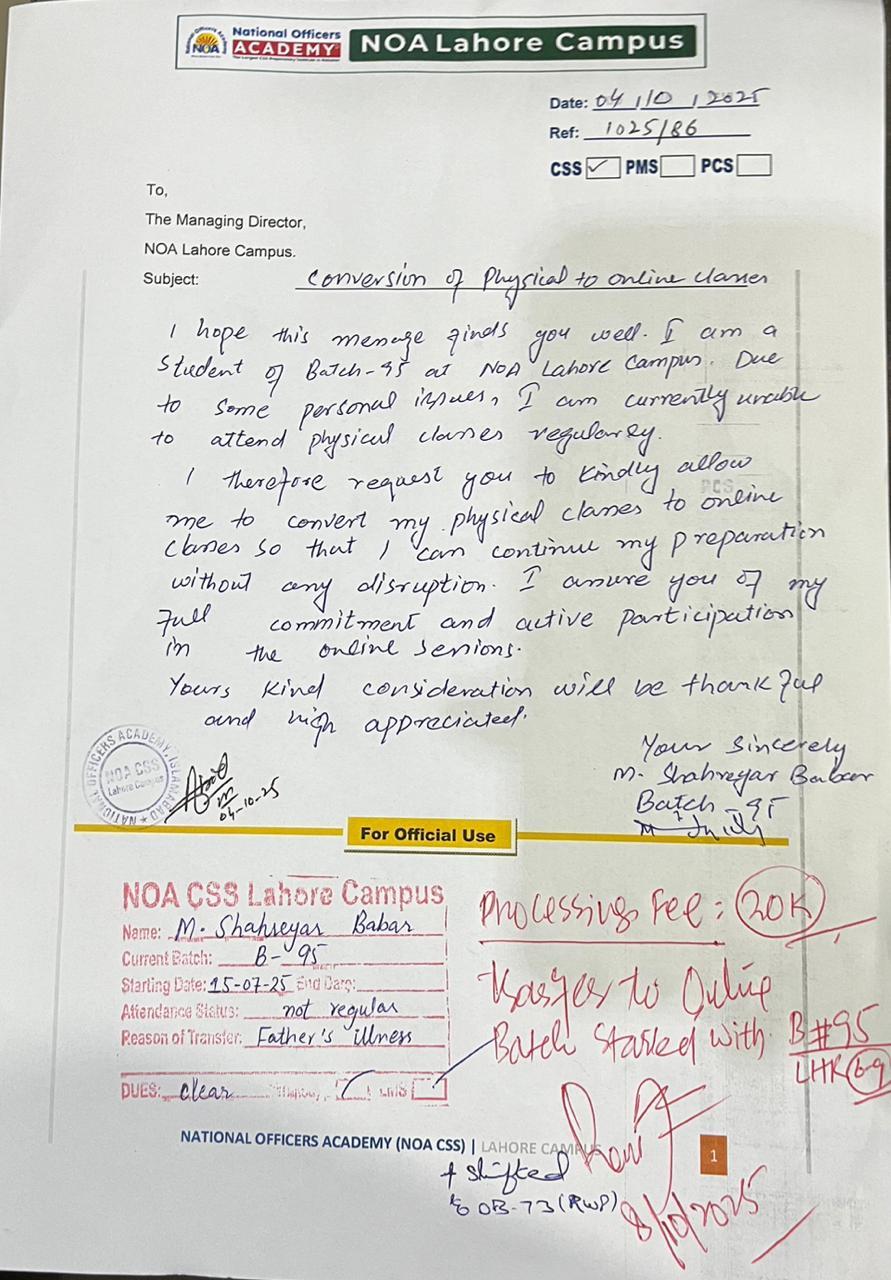 National Officers
ACADEMY
NOA
NOA Lahore Campus
Date: 04/10/2025
Ref: 1025/86
CSS ✓ PMS PCS
To,
The Managing Director,
NOA Lahore Campus.
Subject: Conversion of Physical to online classes
I hope this message finds you well. I am a
Student of Batch-95 at NOA Lahore Campus. Due
to some personal issues, I am currently unable
to attend physical classes regularly.
I therefore request you to kindly allow
me to convert my physical classes to online
classes so that I can continue my preparation
without any disruption. I assure you of my
full commitment and active participation
in the online sessions.
Yours kind consideration will be thankful
and high appreciated.
Your Sincerely
M. Shahreyar Babar
Batch-95
NATIONAL OFFICERS ACADEMY, ISLAMABAD
NOA CSS
Lahore Campus
04-10-25
For Official Use
NOA CSS Lahore Campus
Name: M. Shahreyar Babar
Current Batch: B-95
Starting Date: 15-07-25 End Date:
Attendance Status: not regular
Reason of Transfer: Father's illness
DUES: clear LMS
Processing Fee: 20K
to Online
Batch Started with B#95
LHR
8/10/2025
NATIONAL OFFICERS ACADEMY (NOA CSS) | LAHORE CAMPUS
1
+ shifted
to OB-73 (RWP)